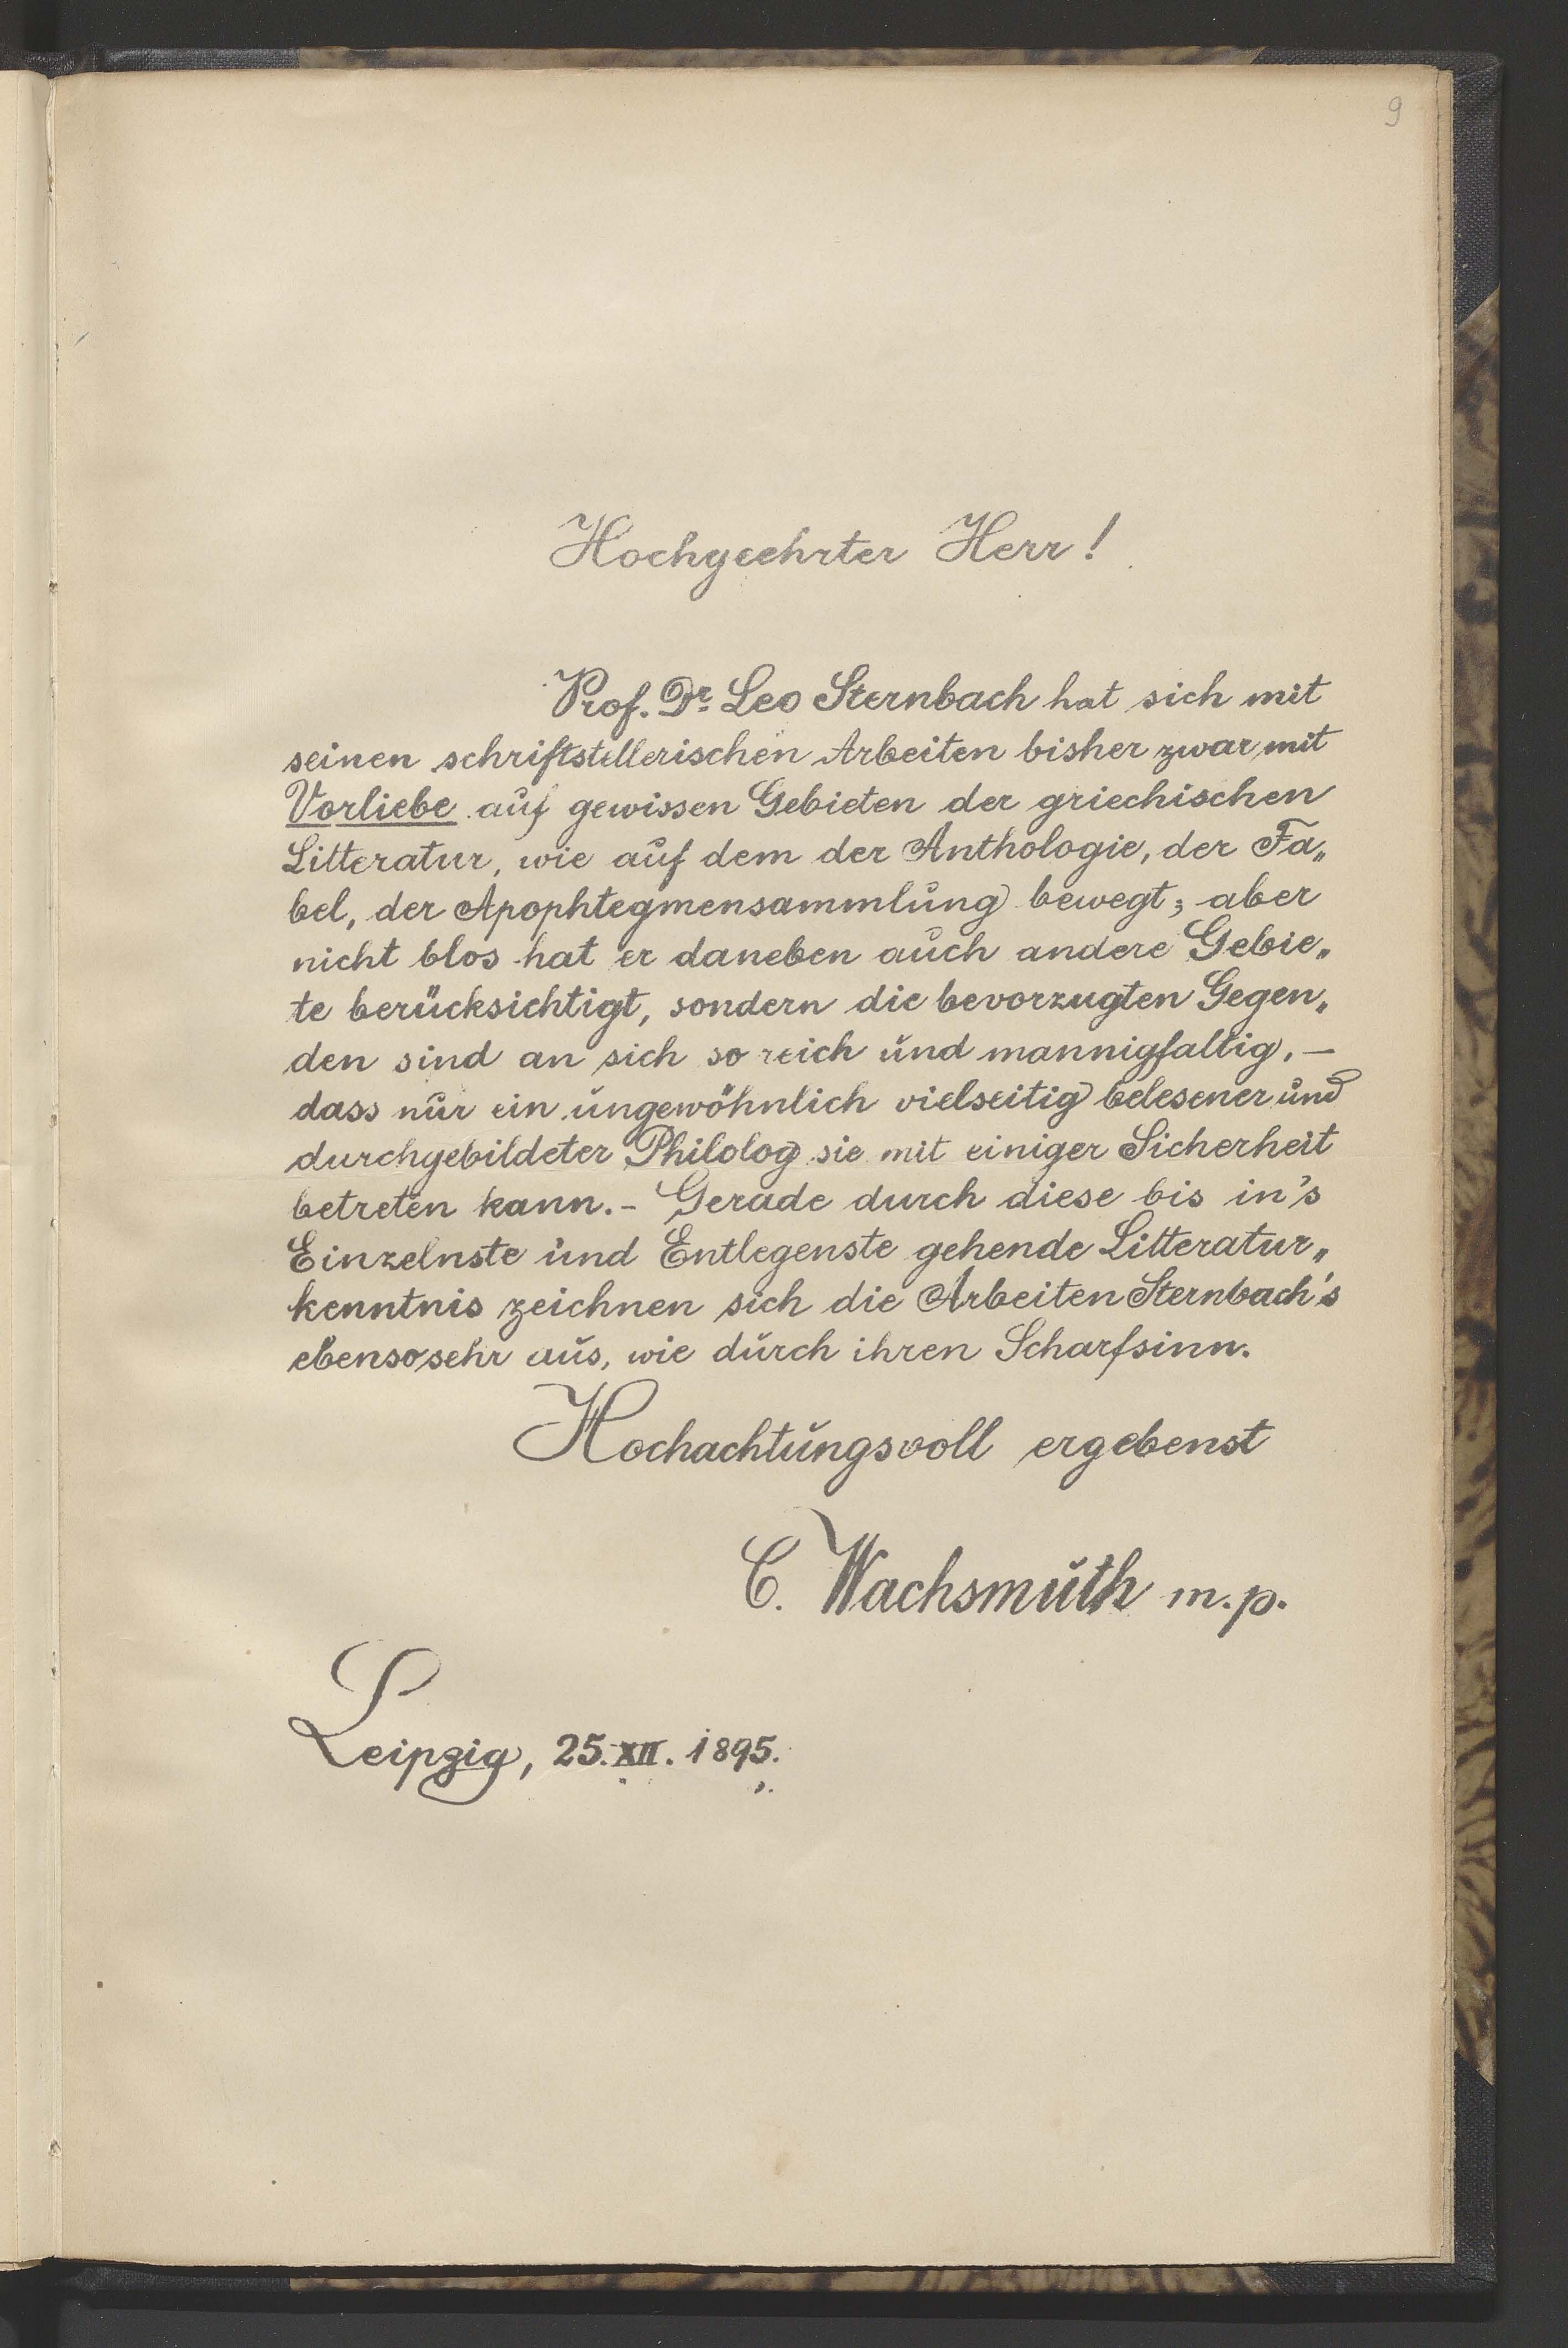 9
Hochgeehrter Herr!
Prof. Dr. Leo Sternbach hat sich mit
seinen schriftstellerischen Arbeiten bisher zwar mit
Vorliebe auf gewissen Gebieten der griechischen
Litteratur, wie auf dem der Anthologie, der Fa„
bel, der Apophtegmensammlung bewegt; aber
nicht blos hat er daneben auch andere Gebie„
te berücksichtigt, sondern die bevorzugten Gegen„
den sind an sich so reich und mannigfaltig, —
dass nur ein ungewöhnlich vielseitig belesener und
durchgebildeter Philolog sie mit einiger Sicherheit
betreten kann. – Gerade durch diese bis in's
Einzelnste und Entlegenste gehende Litteratur„
kenntnis zeichnen sich die Arbeiten Sternbach's
ebensosehr aus, wie durch ihren Scharfsinn.
Hochachtungsvoll ergebenst
C. Wachsmuth m.p.
Leipzig, 25. XII. 1895.